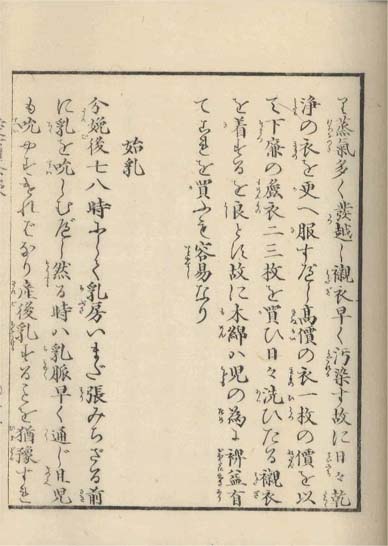 て蒸氣多く發越し襯衣早く汚染す故に日々乾
浄の衣を更へ服すべし高價の衣一枚の價を以
て下廉の衣二三枚を買ひ日々洗ひたる襯衣
を着するを良とす故に木綿ハ児の為に裨益有
てこれを買ふも容易なり
始乳
分娩後七八時にして乳房いまだ張みちざる前
に乳を吮しむべし然る時ハ乳脈早く通じ且児
も吮やすければなり産後乳することを猶豫すれ